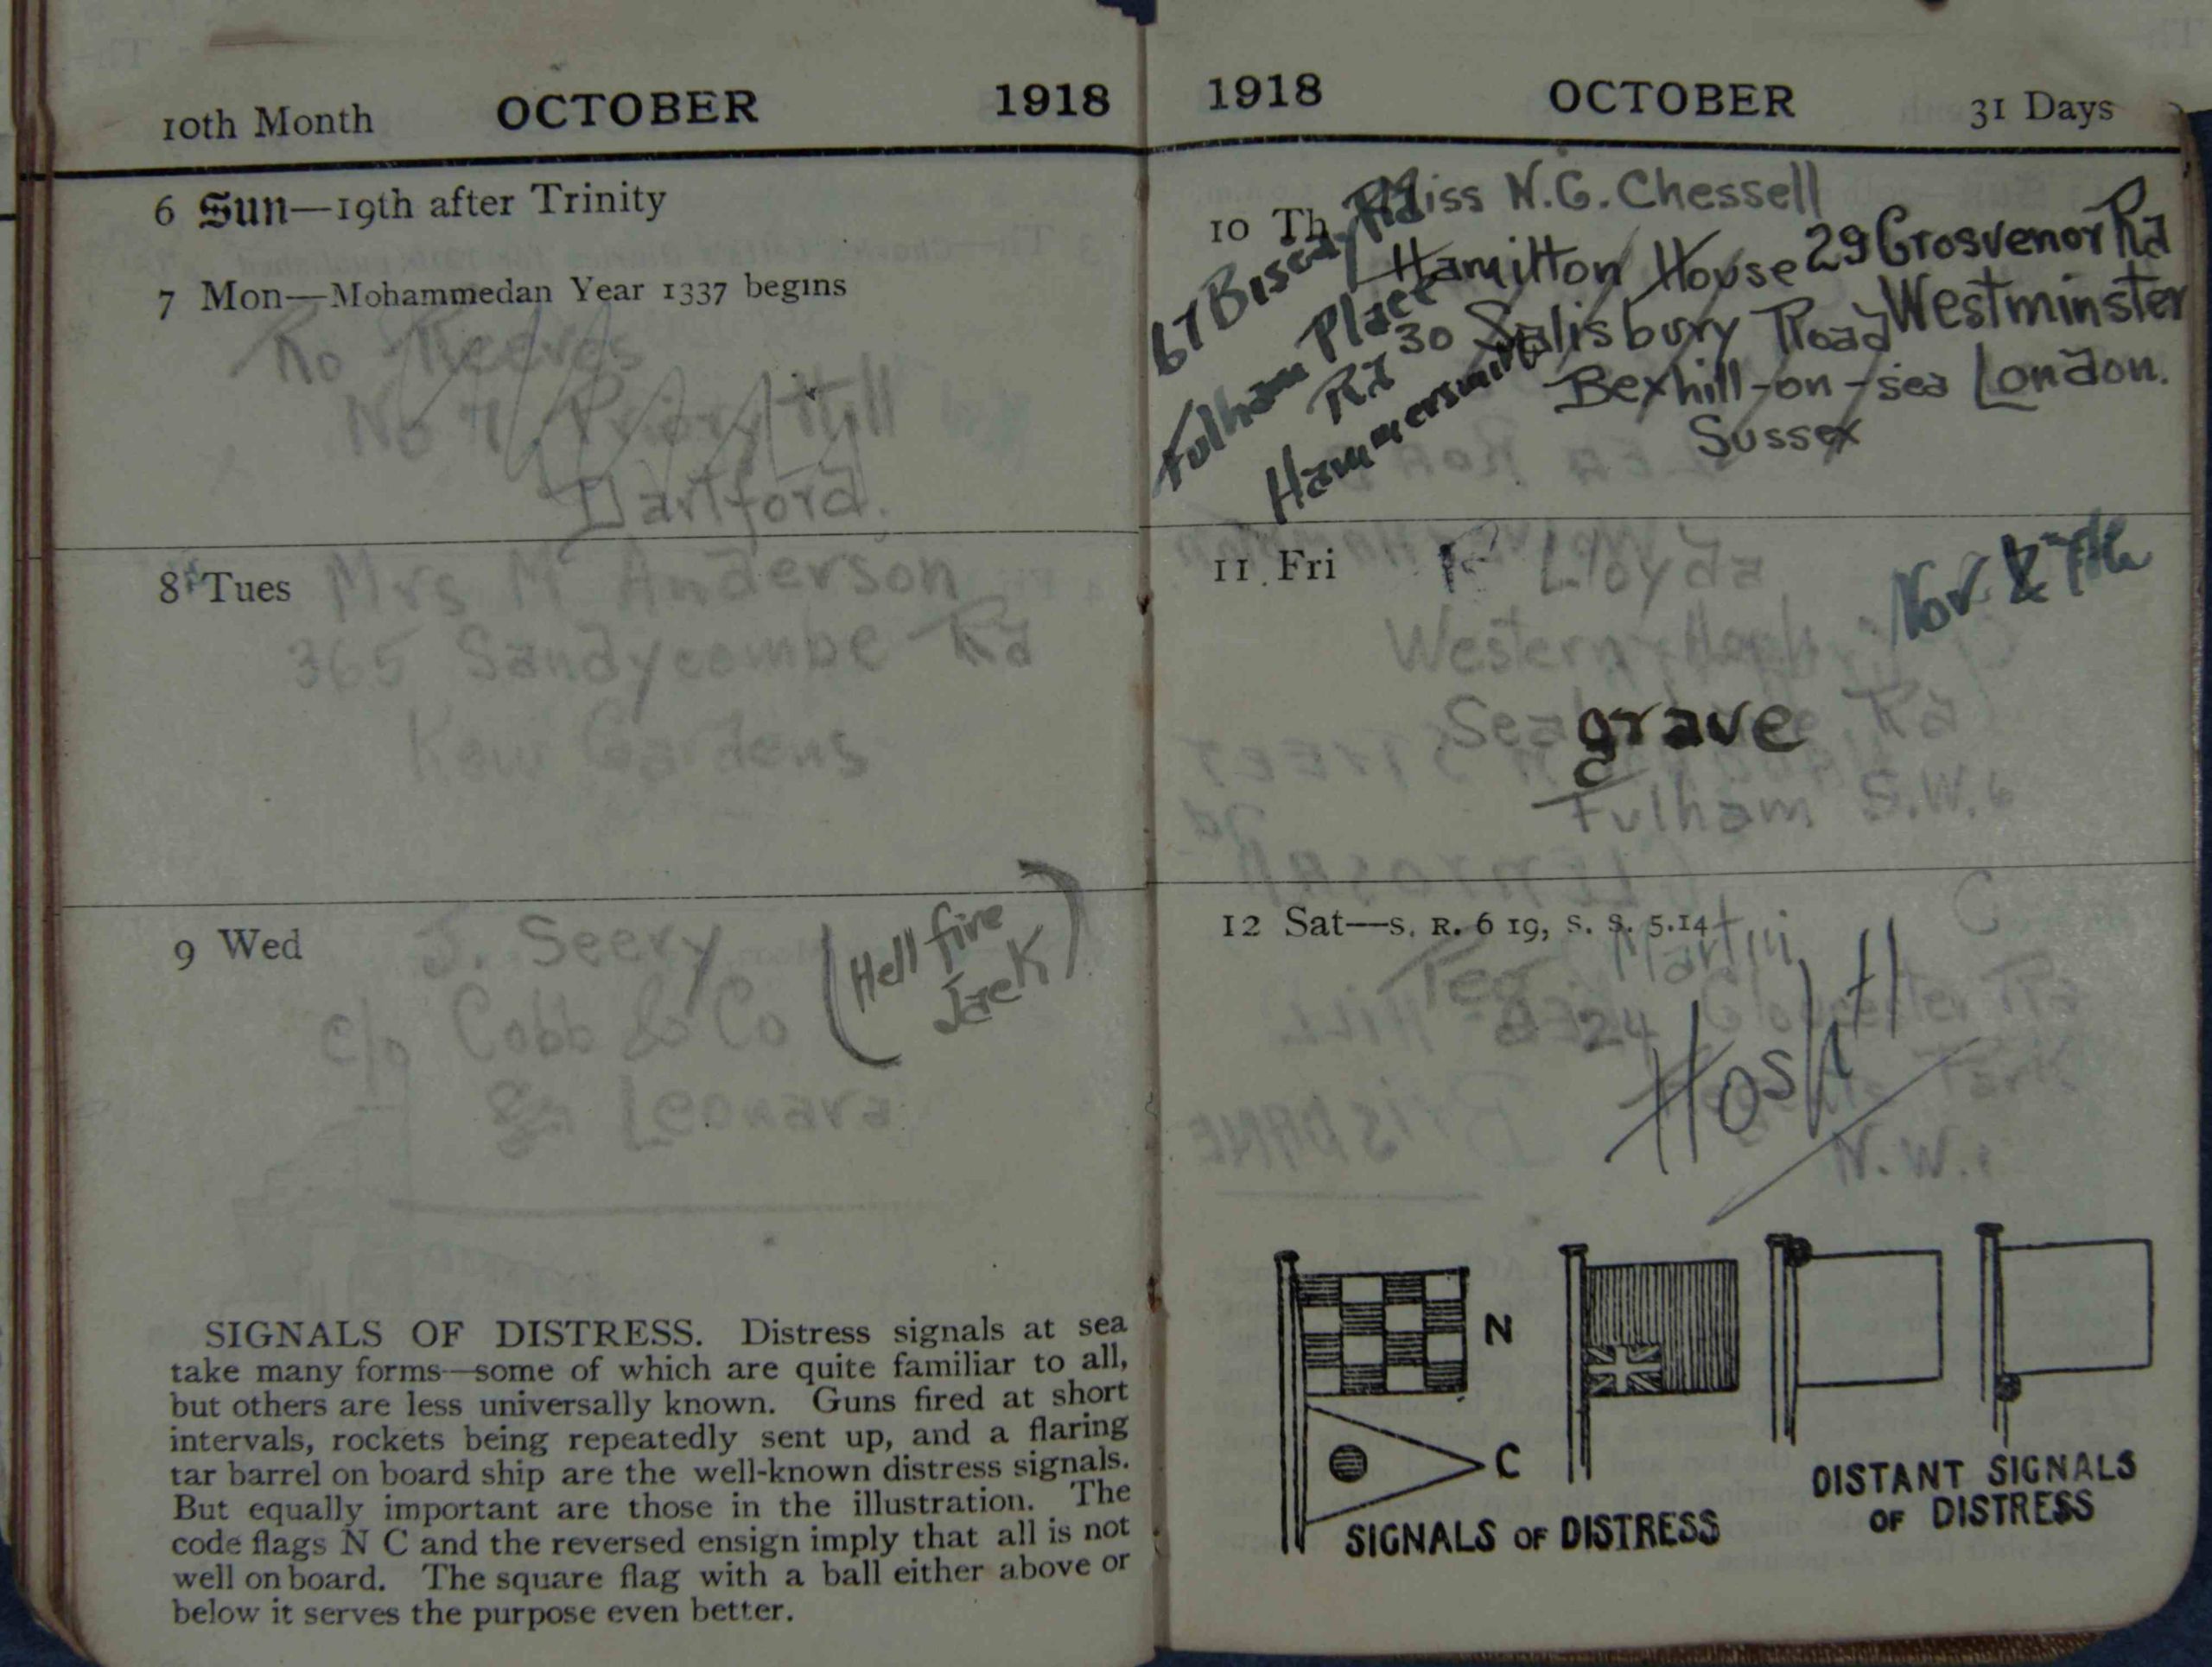 10th Month OCTOBER 1918
6 Sun—19th after Trinity
7 Mon—Mohammedan Year 1337 begins
Ro Reeves
No 7 Priory Hill
Dartford.
8 Tues
Mrs M Anderson
365 Sandycombe Rd
Kew Gardens
9 Wed
J. Seery
c/o Cobb & Co
Leonard
(Hell fire
Jack)
SIGNALS OF DISTRESS. Distress signals at sea
take many forms—some of which are quite familiar to all,
but others are less universally known. Guns fired at short
intervals, rockets being repeatedly sent up, and a flaring
tar barrel on board ship are the well-known distress signals.
But equally important are those in the illustration. The
code flags N C and the reversed ensign imply that all is not
well on board. The square flag with a ball either above or
below it serves the purpose even better.
1918 OCTOBER 31 Days
10 Th
Miss N.G. Chessell
Hamilton House
30 Salisbury Road
Bexhill-on-sea
Sussex
29 Grosvenor Rd
Westminster
London.
67 Biscay Rd
Fulham Place
Rd
Hammersmith
11 Fri
Lloyd
Nov 7th
Western
grave Rd
Fulham S.W.6
12 Sat—S. R. 6 19, S. S. 5.14
Peg Martin
24 Gloucester Rd
Park
N.W.1
N
C
SIGNALS OF DISTRESS
DISTANT SIGNALS
OF DISTRESS